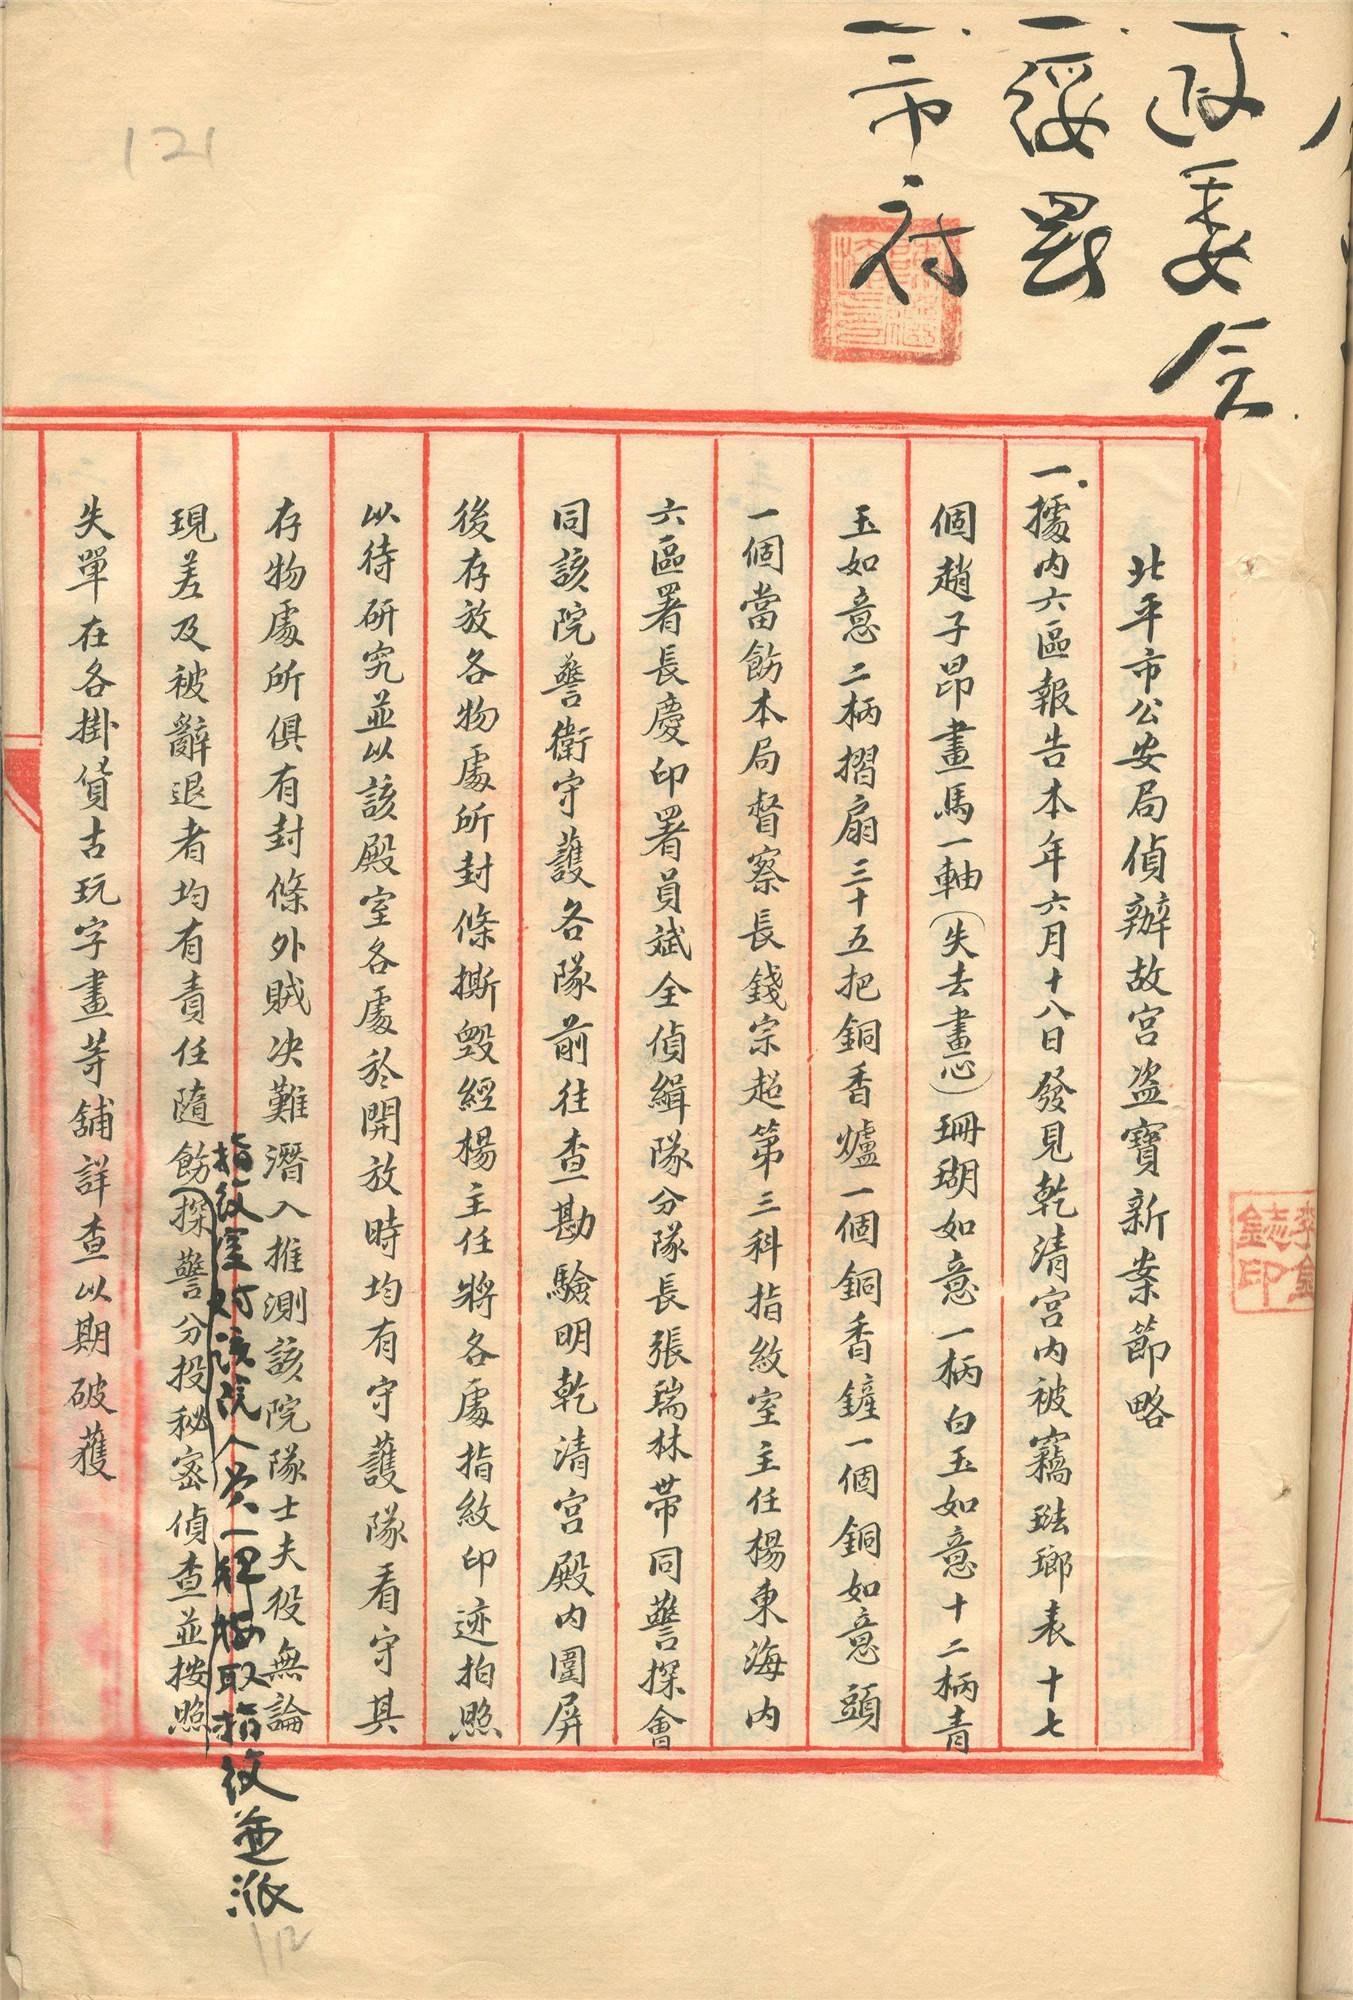 政委会
一綏署
一市府
121
北平市公安局偵辦故宮盗寶新案節略
一據内六區報告本年六月十八日發見乾清宮内被竊琺瑯表十七
個趙子昂畫馬一軸（失去畫心）珊瑚如意一柄白玉如意十二柄青
玉如意二柄摺扇三十五把銅香爐一個銅香鐘一個銅如意頭
一個當飭本局督察長錢宗超第三科指紋室主任楊東海内
六區署長慶印署員斌全偵緝隊分隊長張瑞林帶同警探會
同該院警衛守護各隊前往查勘驗明乾清宮殿内圍屏
後存放各物處所封條撕毁經楊主任將各處指紋印迹拍照
以待研究並以該殿室各處於開放時均有守護隊看守其
存物處所俱有封條外賊决難潛入推測該院隊士夫役無論
現差及被辭退者均有責任隨飭探警分投秘密偵查並按照
指紋室对該院人員一律按取指紋並派
失單在各掛貨古玩字畫等舖詳查以期破獲
112